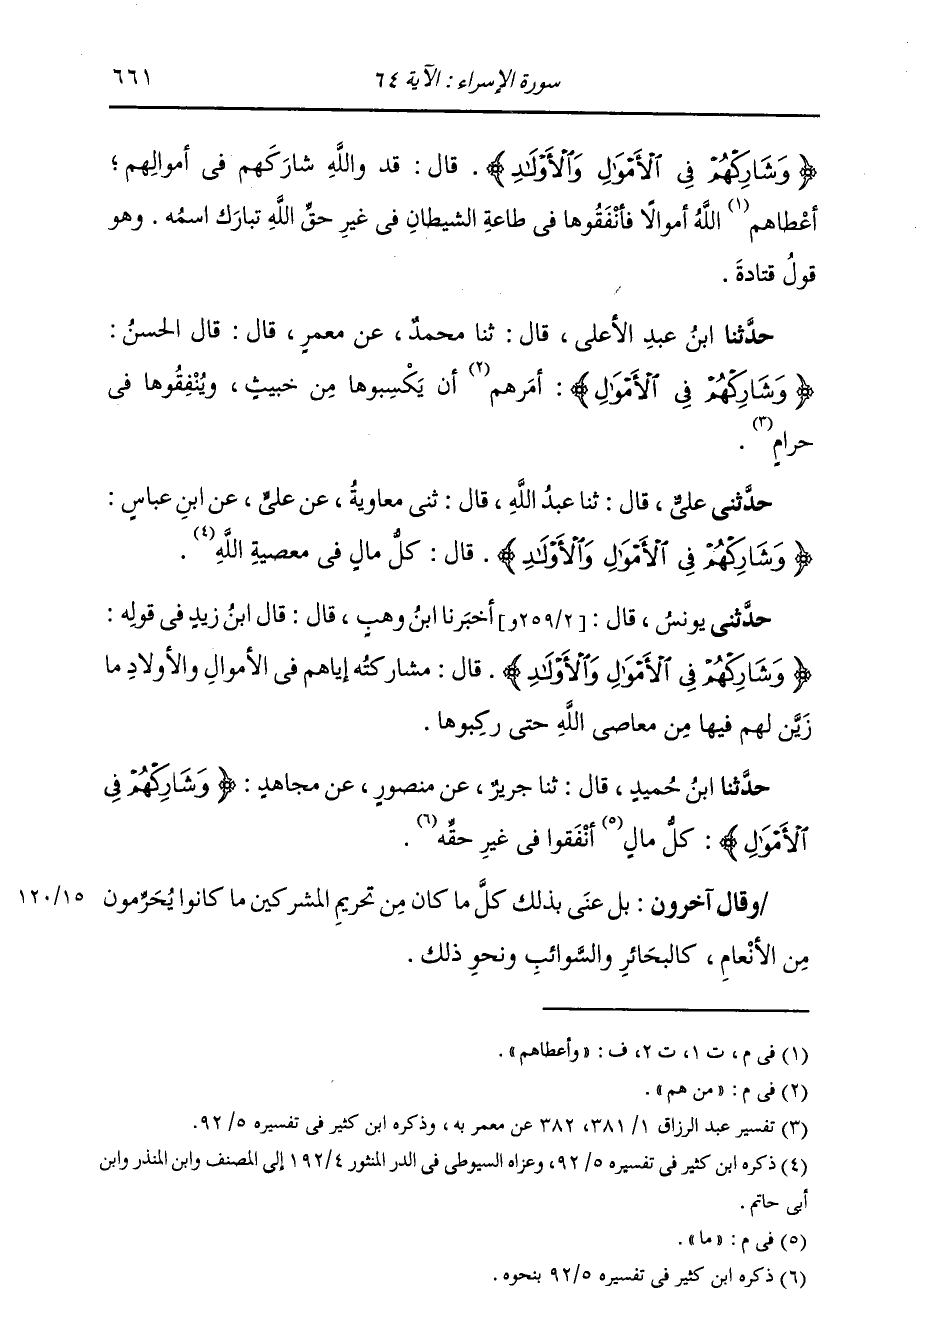 سورة الإسراء : الآية ٦٤
٦٦١
﴿ وَشَارِكْهُمْ فِي ٱلْأَمْوَٰلِ وَٱلْأَوْلَٰدِ ﴾ . قال : قد واللَّهِ شارَكَهم فى أموالِهم ؛
أعْطاهم(١) اللَّهُ أموالًا فأنْفَقُوها فى طاعةِ الشيطانِ فى غيرِ حقِّ اللَّهِ تبارَك اسمُه . وهو
قولُ قتادةَ .
حدَّثنا ابنُ عبدِ الأعلى ، قال : ثنا محمدٌ ، عن معمرٍ ، قال : قال الحسنُ :
﴿ وَشَارِكْهُمْ فِي ٱلْأَمْوَٰلِ ﴾ : أمَرهم(٢) أن يَكْسِبوها مِن خبيثٍ ، ويُنْفِقُوها فى
حرامٍ(٣) .
حدَّثنى علىٌّ ، قال : ثنا عبدُ اللَّهِ ، قال : ثنى معاويةُ ، عن علىٍّ ، عن ابنِ عباسٍ :
﴿ وَشَارِكْهُمْ فِي ٱلْأَمْوَٰلِ وَٱلْأَوْلَٰدِ ﴾ . قال : كلُّ مالٍ فى معصيةِ اللَّهِ(٤) .
حدَّثنى يونسُ ، قال : [٢٥٩/٢و] أخبَرنا ابنُ وهبٍ ، قال : قال ابنُ زيدٍ فى قولِه :
﴿ وَشَارِكْهُمْ فِي ٱلْأَمْوَٰلِ وَٱلْأَوْلَٰدِ ﴾ . قال : مشاركتُه إياهم فى الأموالِ والأولادِ ما
زَيَّن لهم فيها مِن معاصى اللَّهِ حتى ركِبوها .
حدَّثنا ابنُ حُميدٍ ، قال : ثنا جريرٌ ، عن منصورٍ ، عن مجاهدٍ : ﴿ وَشَارِكْهُمْ فِي
ٱلْأَمْوَٰلِ ﴾ : كلُّ مالٍ(٥) أنْفَقوا فى غيرِ حقِّه(٦) .
/وقال آخرون : بل عنَى بذلك كلَّ ما كان مِن تحريمِ المشركين ما كانوا يُحَرِّمون ١٢٠/١٥
مِن الأنْعامِ ، كالبحَائرِ والسَّوائبِ ونحوِ ذلك .
(١) فى م ، ت ١، ت ٢، ف : «وأعطاهم» .
(٢) فى م : «من هم» .
(٣) تفسير عبد الرزاق ١/ ٣٨١، ٣٨٢ عن معمر به ، وذكره ابن كثير فى تفسيره ٥/ ٩٢.
(٤) ذكره ابن كثير فى تفسيره ٥/ ٩٢، وعزاه السيوطى فى الدر المنثور ١٩٢/٤ إلى المصنف وابن المنذر وابن
أبى حاتم .
(٥) فى م : «ما» .
(٦) ذكره ابن كثير فى تفسيره ٩٢/٥ بنحوه .